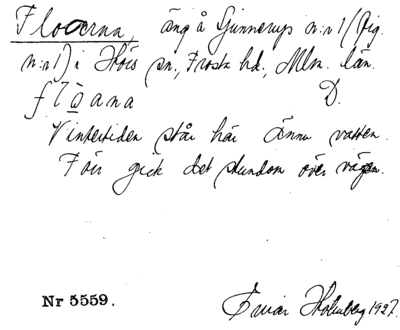 Floarna, äng å Gunnarup n:o 1 (fig.
n:o 1) i Höörs sn., Frosta hd., Mlm. län.
flòana D.
Vintertiden står här ännu vatten.
Förr gick det stundom över vägen.
Nr 5559.
Einar Holmberg 1927.